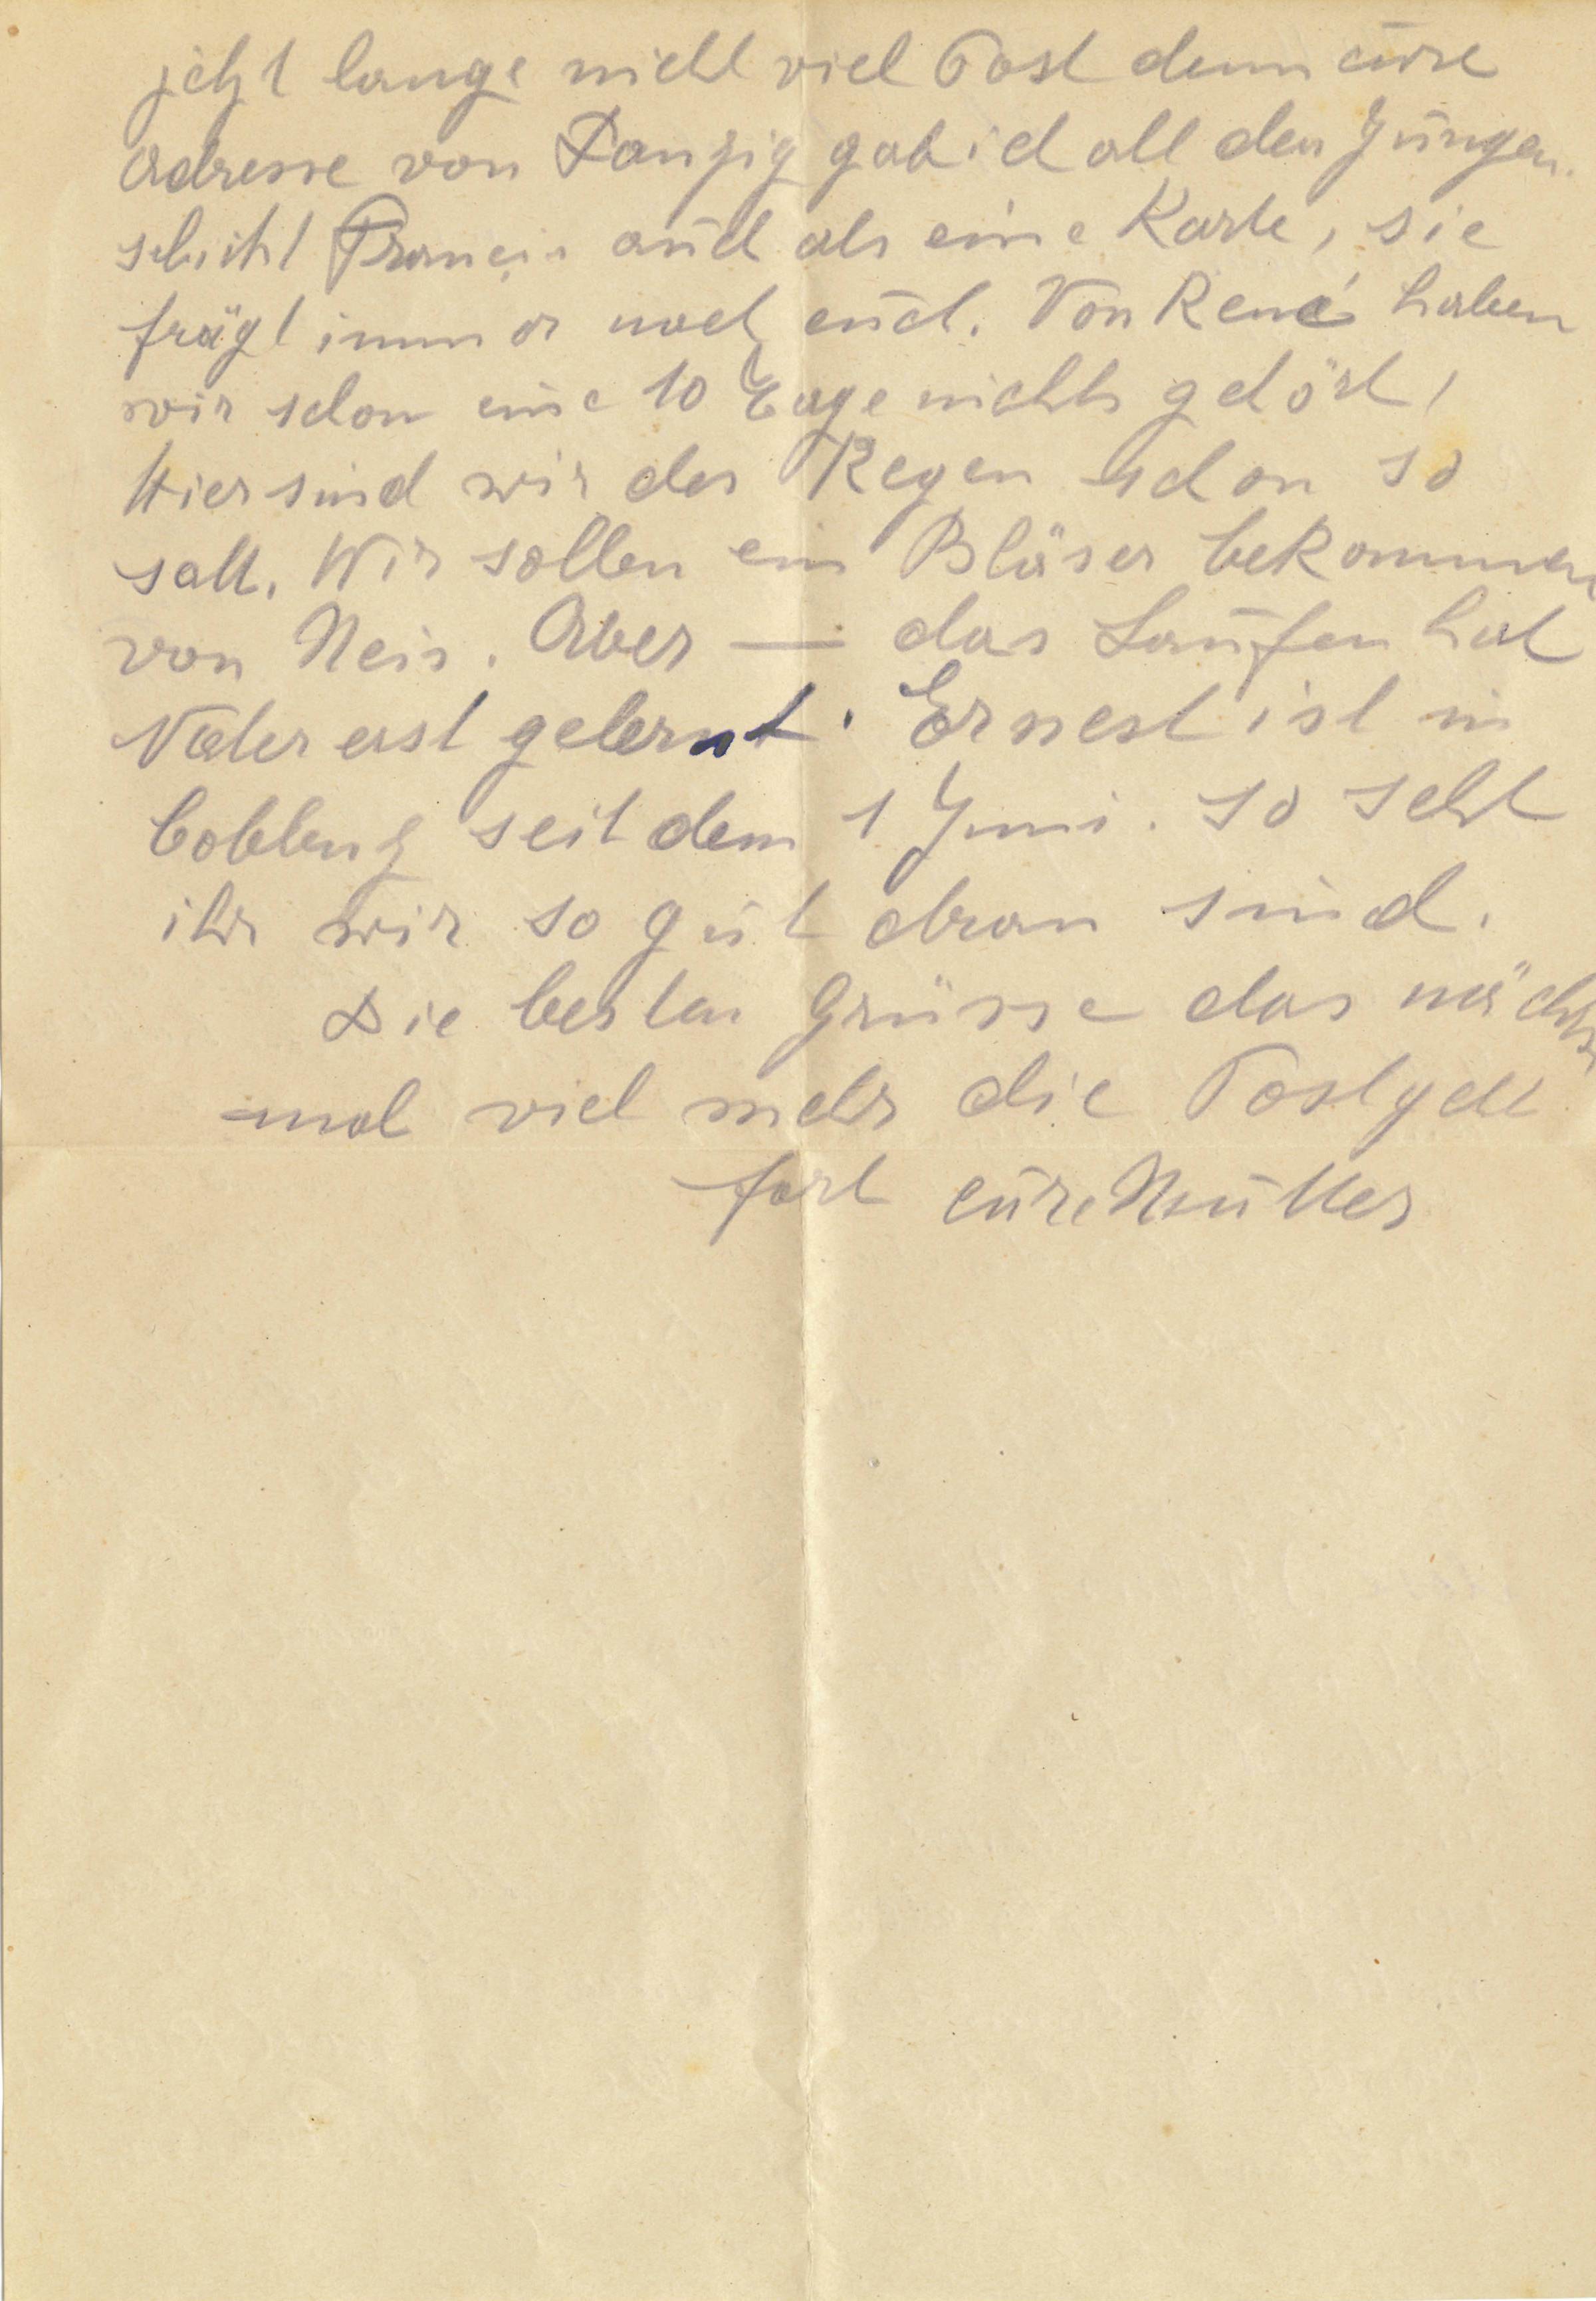 jetzt lange nicht viel Post denn eure
Adresse von Danzig gab ich all den Jungen.
schikt Francis auch als eine Karte, sie
frägt immer nach euch. Von René haben
wir schon eine 10 Tage nichts gehört,
Hier sind wir der Regen schon so
satt. Wir sollen ein Bläser bekommen
von Neis. Aber — das Laufen hat
Vater erst gelernt. Ernest ist in
Coblenz seit dem 1 Juni. so seht
ihr wir so gut dran sind.
Die besten Grüsse das nächste
mal viel mehr die Post geht
fort eure Mutter